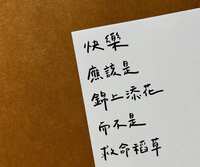 快樂
應該是
錦上添花
而不是
救命稻草